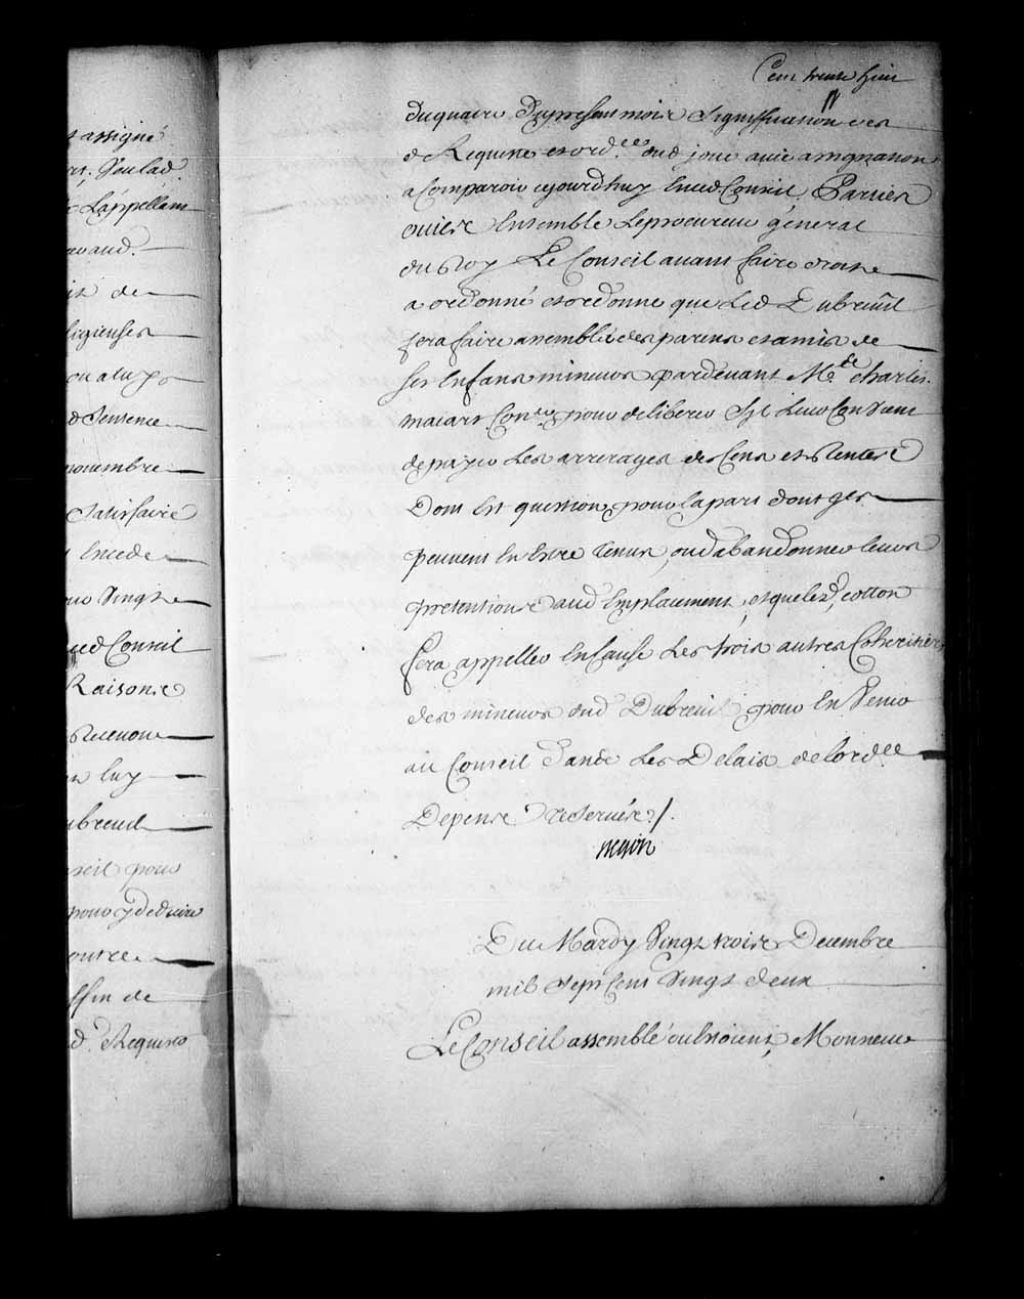 t assigné
rs. Sou lad.
& L'appellam
avaud.
is de
ligieuses
ou a luy
d Sentence
novembre
Satisfaire
Encede
Vingt
ued Conseil
Raisons
Revenons
luy
ubreuil
seil pour
pour y deduire
outre
ffin de
d. Requis
Cent trente huit
du quatre du present mois Signiffication
de Requeste et ord.ce dud jour avec assignation
a Comparoir cejourdhuy Enced Conseil Parties
ouies Ensemble Le procureur général
du Roy Le Conseil avant faire droit
a ordonné et ordonne que Led Dubreüil
fera faire assemblée des parens et amis de
ses Enfans mineurs pardevant M.e charles
macart Con.er pour deliberer Sil Leur Convient
de payer Les arrerages des Cens et Rentes
Dont Est question pour la part dont ils
peuvent En Estre tenus, ou d'abandonner leurs
pretentions aud Emplacement, et que led. cotton
fera appeller En Cause Les trois autres Coheritiers
des mineurs dud Dubreuil pour En Venir
au Conseil dans Les Delais de lord.ce
Depens Reservés /.
Du Mardy Vingt trois Decembre
mil Sept Cent Vingt deux
Le Conseil assemblé ou Estoient, Monsieur